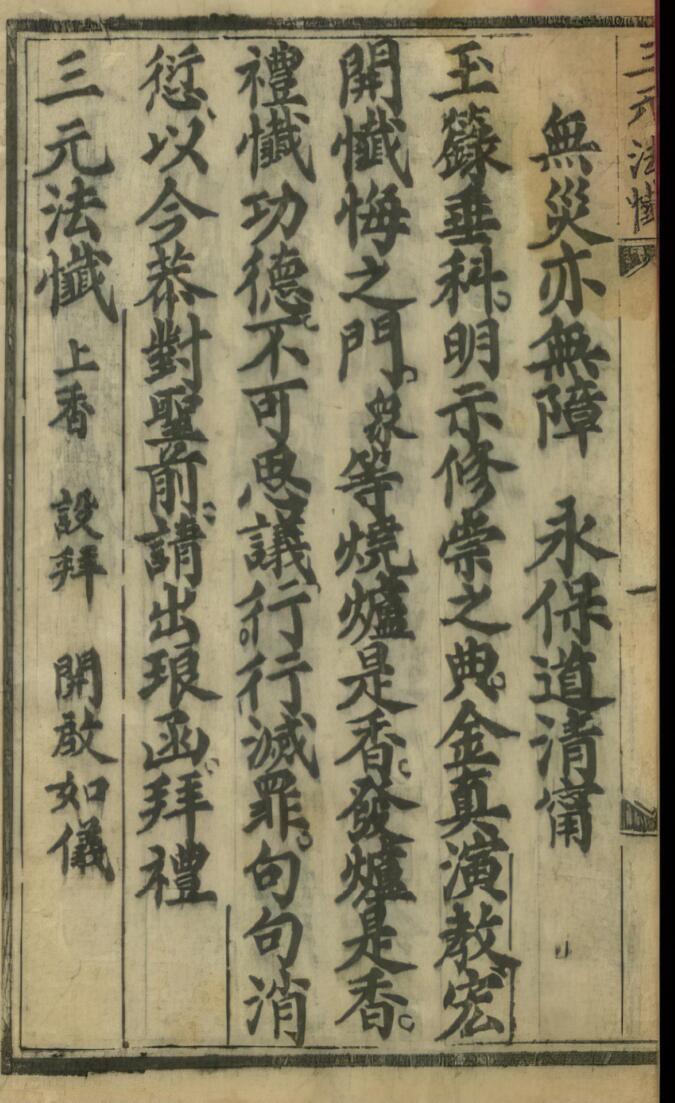 三元法懺
一
無災亦無障　永保道清甯
玉籙垂科。明示修崇之典。金真演教。宏
開懺悔之門。衆等燒爐是香。發爐是香。
禮懺功德。不可思議。行行滅罪。句句消
愆。以今恭對聖前。請出琅函。拜禮
三元法懺　上香　設拜　開啟如儀